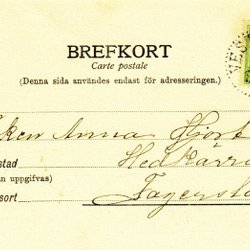 BREFKORT
Carte postale
(Denna sida användes endast för adresseringen.)
ken Anna Hjort
stad Hedkärra
n uppgifvas)
sort Fagersta